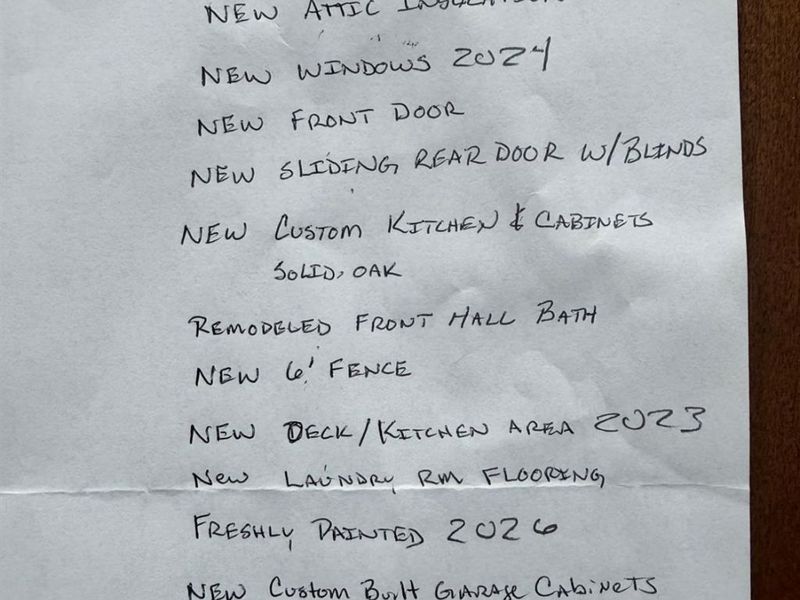 NEW ATTIC INSULATION
NEW WINDOWS 2024
NEW FRONT DOOR
NEW SLIDING REAR DOOR W/BLINDS
NEW CUSTOM KITCHEN & CABINETS
SOLID, OAK
REMODELED FRONT HALL BATH
NEW 6' FENCE
NEW DECK/KITCHEN AREA 2023
NEW LAUNDRY RM FLOORING
FRESHLY PAINTED 2026
NEW CUSTOM BUILT GARAGE CABINETS